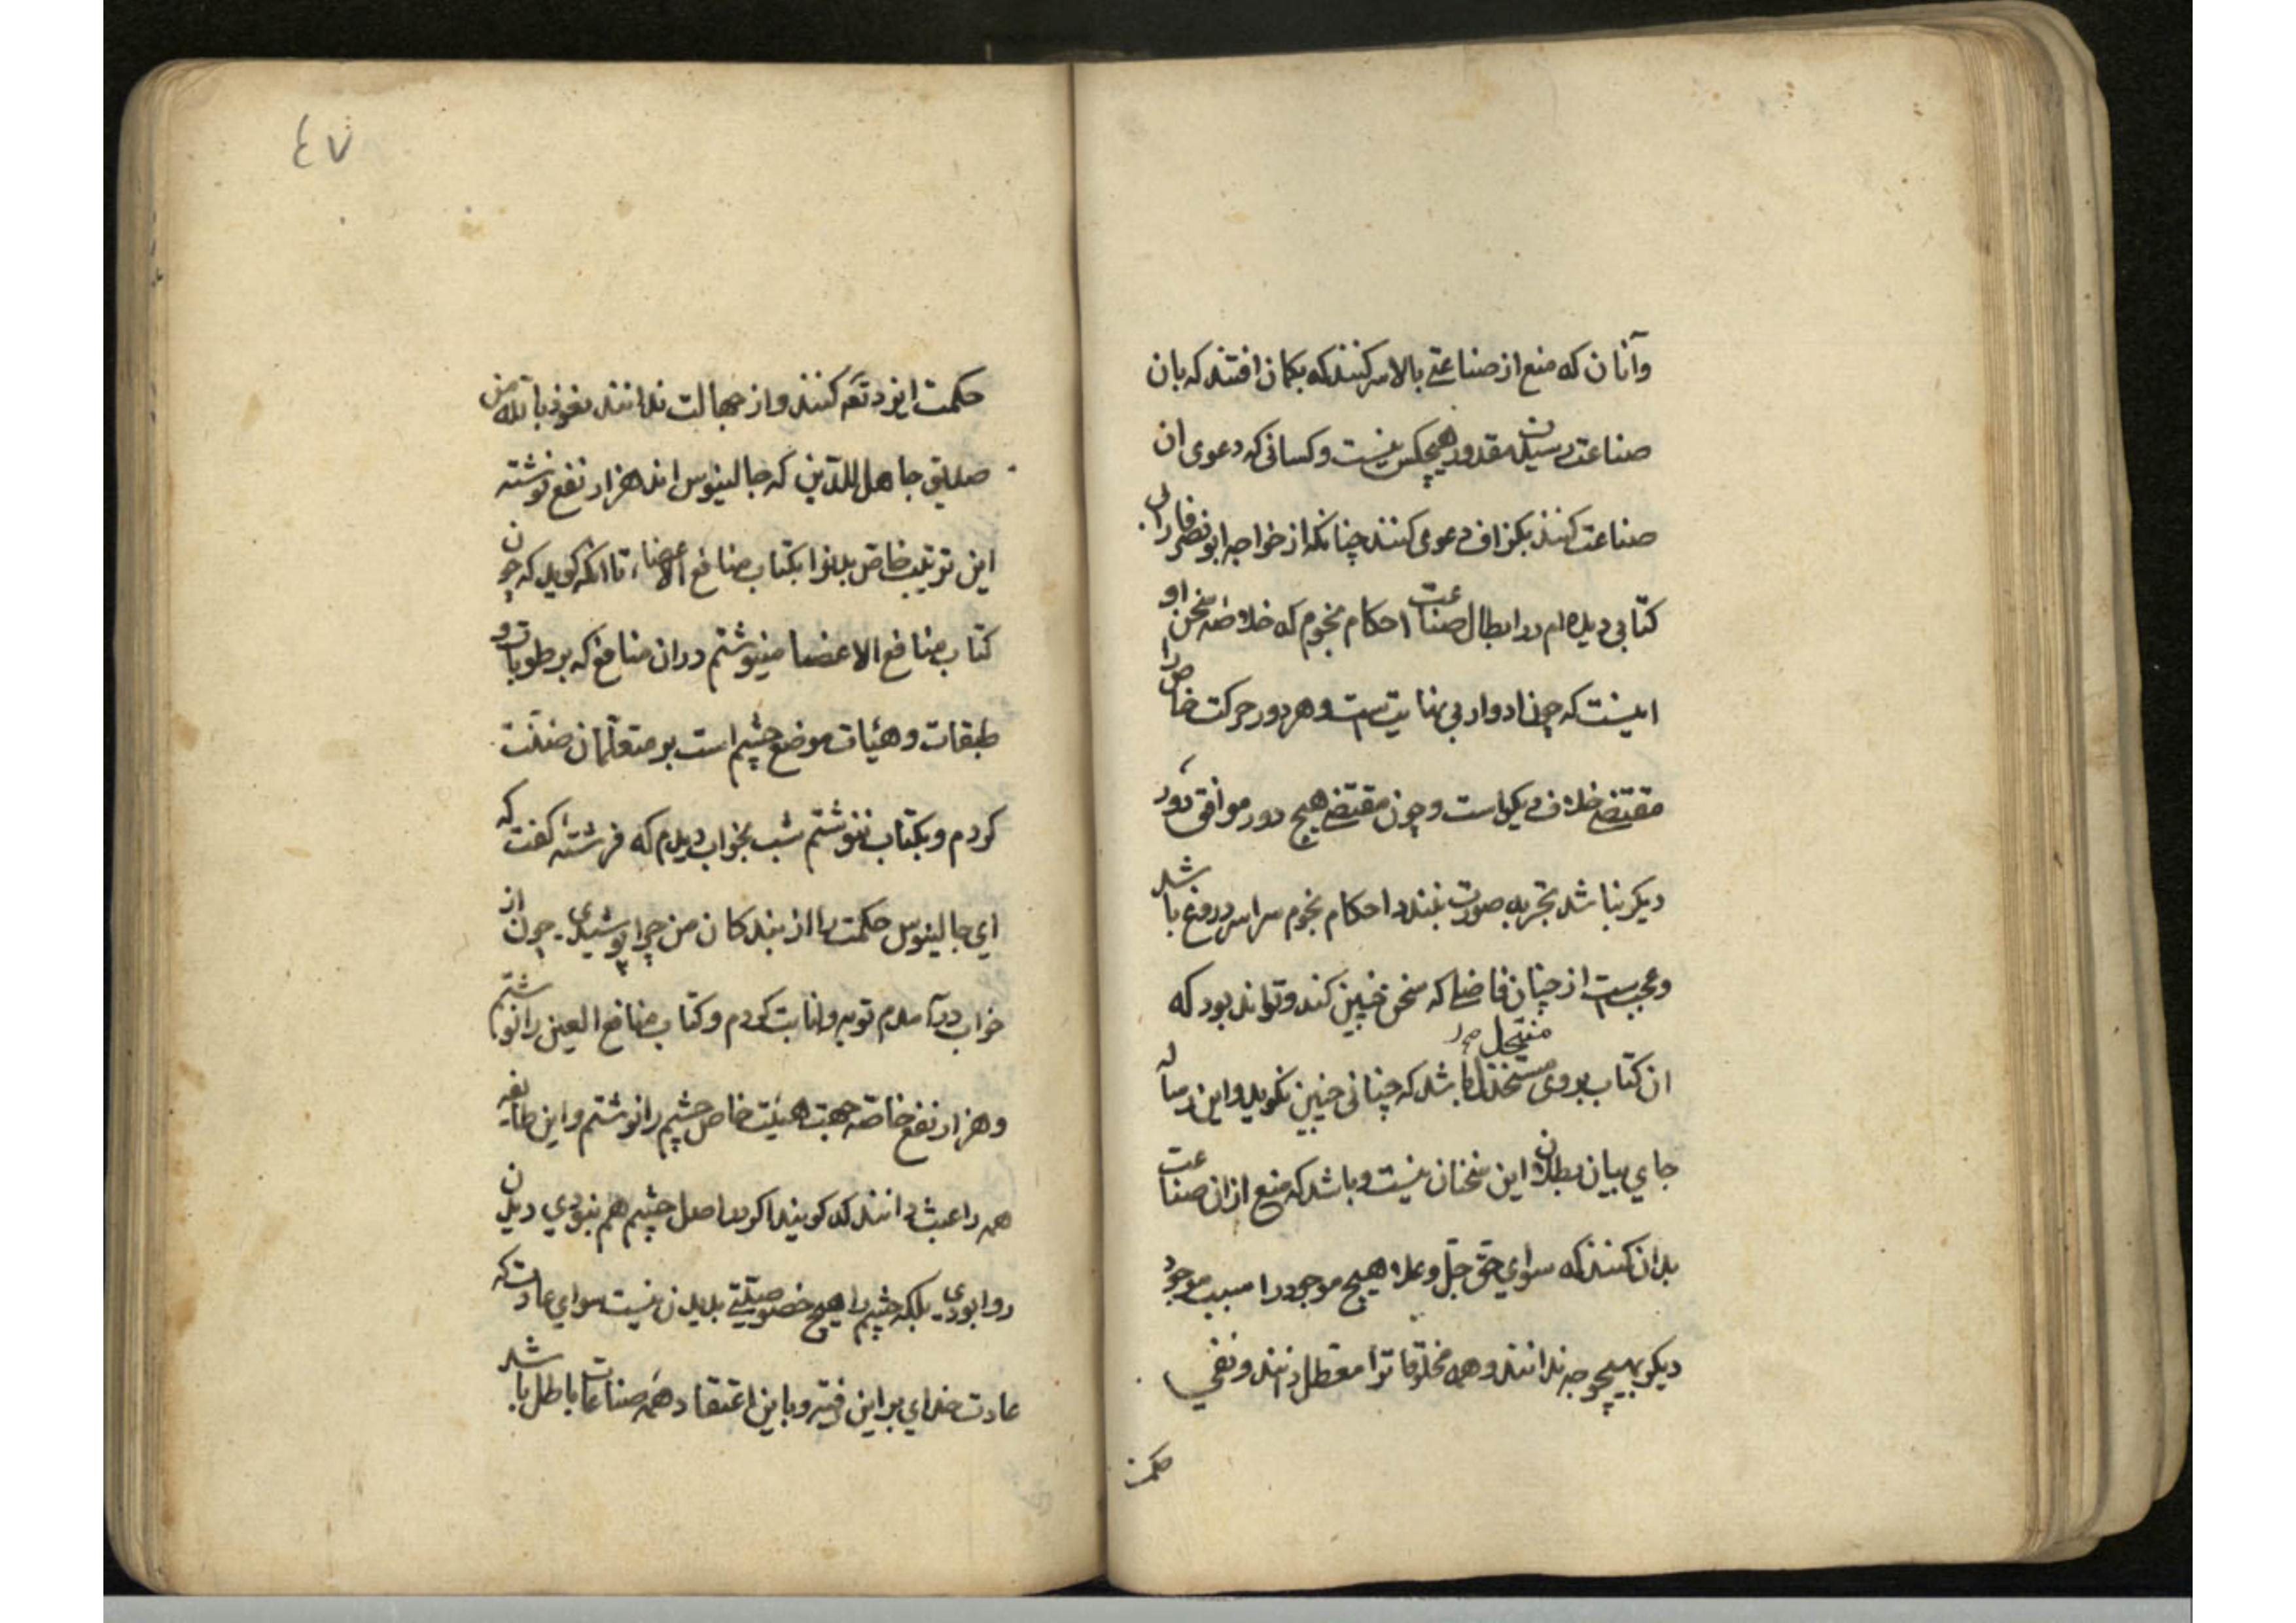 وآنان که منع از صناعتی بالاسر کنند که بکمان افتند که بان
صناعت رسیدن مقدور هیچکس نیست و کسانی که دعوی ان
صناعت کنند بکزاف دعوی کنند چنانکه از خواجه ابو نصر فارابی
کتابی دیده ام در ابطال صناعت احکام نجوم که خلاصه سخن او
اینست که چون ادوار بی نهایتست و هر دور حرکت خاص را
مقتضی خلاف دیکر است و چون مقتضی هیچ دور موافق دور
دیکر نباشد تجربه صورت نبندد احکام نجوم سراسر دروغ باشد
و عجبست از چنان فاضلی که سخن چنین کند و تواند بود که
منتحل
ان کتاب بروی باشد که چنانی چنین نکوید و این رساله
جای بیان بطلان این سخنان نیست و باشد که منع ازان صناعت
بدان کنند که سوای حق جل و علا هیچ موجود را سبب موجود
دیکر بهیچوجه ندانند و همه مخلوقاترا معطل دانند و نفی
حکمت
٤٧
حکمت ایزد تعه کنند و از جهالت ندانند نعوذ بالله من
صدیق جاهل للدین که جالینوس اند هزار نفع نوشته
این ترتیب خاص بدنرا بکتاب منافع الاعضاء تا انکه کوید که چون
کتاب منافع الاعضا مینوشتم دران منافع که بر طوبات و
طبقات و هیٔات موضع چشم است بر متعلمان ضنّت
کردم و بکتاب ننوشتم شب بخواب دیدم که فرشتهٔ کفت که
ای جالینوس حکمت را از بندکان من چرا پوشیدی چون از
خواب درآمدم توبه و انابت کردم و کتاب منافع العین را نوشتم
و هزار نفع خاصه جهت هیئت خاص چشم را نوشتم و این طایفه
همه را عبث دانند که کویند اکر اصل چشم هم نبودی دیدن
روا بودی بلکه چشم را هیچ خصوصیتی بدیدن نیست سوای عادت که
عادت خدای بر این رفته و باین اعتقاد همه صناعات باطل باشد